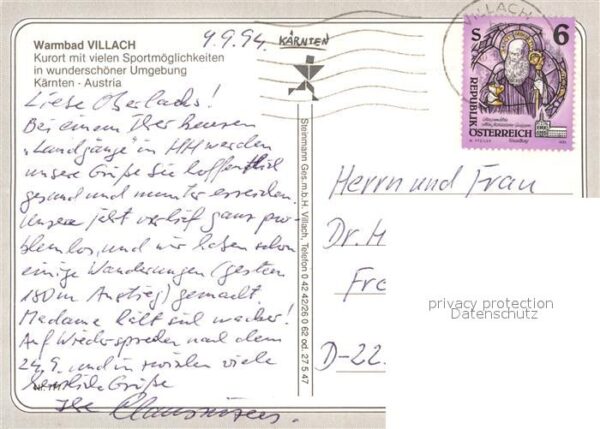 Warmbad VILLACH
Kurort mit vielen Sportmöglichkeiten
in wunderschöner Umgebung
Kärnten - Austria
9.9.94.
KÄRNTEN
VILLACH
S 6
REPUBLIK
ÖSTERREICH
Liebe Oberlachs!
Bei einem Ihrer neuen
„Landgänge" in HH werden
unsere Grüße Sie hoffentlich
gesund und munter erreichen.
Unsere verlief ganz pro-
blemlos, und wir haben schon
einige Wanderungen (gestern
180m Anstieg) gemacht.
Madame hält sich wacker!
Auf Wiedersprechen nach dem
24.9. und inzwischen viele
herzliche Grüße
Ihre
Steinmann Ges.m.b.H. Villach, Telefon 0 42 42/26 0 62 od. 27 5 47
Herrn und Frau
Dr. H
Fre
D-22.
privacy protection
Datenschutz